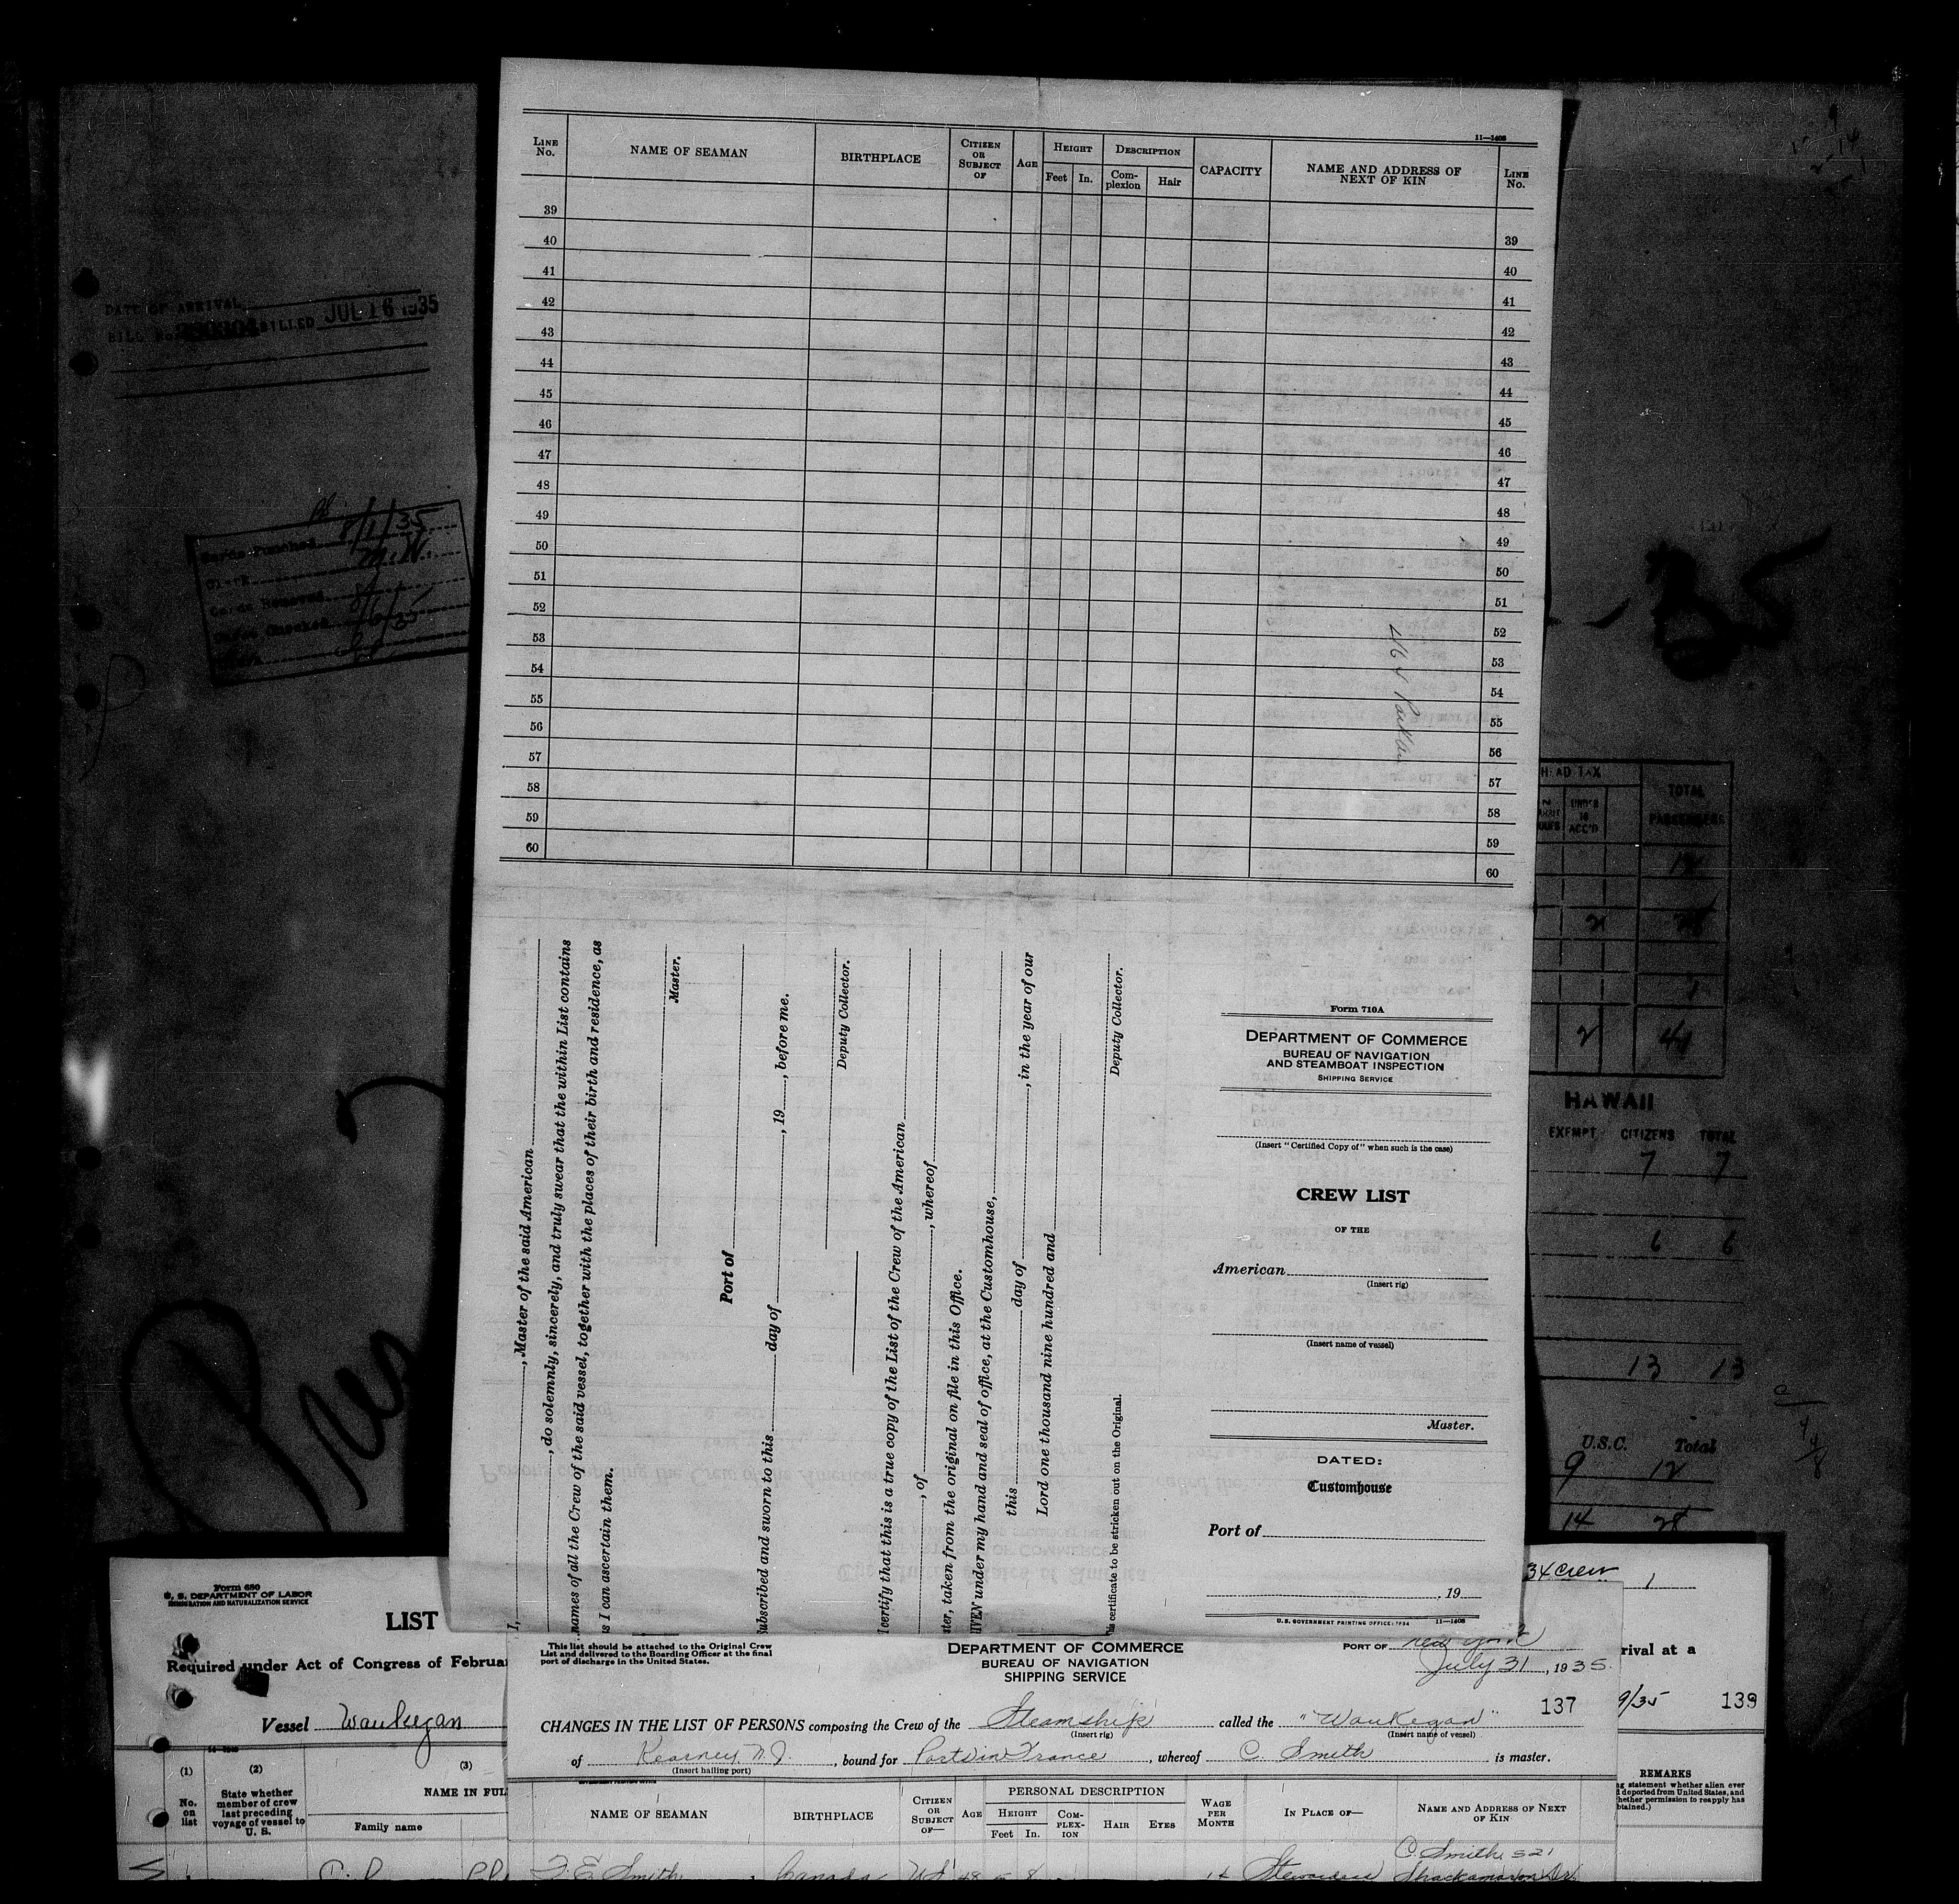 11—1408
LINE No. NAME OF SEAMAN BIRTHPLACE CITIZEN OR SUBJECT OF AGE HEIGHT Feet In. DESCRIPTION Complexion Hair CAPACITY NAME AND ADDRESS OF NEXT OF KIN LINE No.
39 39
40 40
41 41
42 42
43 43
44 44
45 45
46 46
47 47
48 48
49 49
50 50
51 51
52 52
53 53
54 54
55 55
56 56
57 57
58 58
59 59
60 60
I,
, Master of the said American
, do solemnly, sincerely, and truly swear that the within List contains
names of all the Crew of the said vessel, together with the places of their birth and residence, as
s I can ascertain them.
Master.
Port of
ubscribed and sworn to this day of , 19 , before me.
Deputy Collector.
certify that this is a true copy of the List of the Crew of the American
, of , whereof
ster, taken from the original on file in this Office.
IVEN under my hand and seal of office, at the Customhouse,
this day of , in the year of our
Lord one thousand nine hundred and
Deputy Collector.
is certificate to be stricken out on the Original.
Form 710A
DEPARTMENT OF COMMERCE
BUREAU OF NAVIGATION
AND STEAMBOAT INSPECTION
SHIPPING SERVICE
(Insert "Certified Copy of" when such is the case)
CREW LIST
OF THE
American
(Insert rig)
(Insert name of vessel)
Master.
DATED:
Customhouse
Port of
, 19
U.S. GOVERNMENT PRINTING OFFICE: 1934 11—1408
DATE OF ARRIVAL
BILL No. BILLED JUL 16 1935
Cards Punched 8/1/35
Clerk M.W.
Cards Removed
Cards Checked 8/6/35
35
HEAD TAX
UNDER 16 ACC'D
TOTAL PASSENGERS
2
2 44
HAWAII
EXEMPT CITIZENS TOTAL
7 7
6 6
13 13
U.S.C. Total
9 12
14
34 Crew 1
Form 680
U. S. DEPARTMENT OF LABOR
IMMIGRATION AND NATURALIZATION SERVICE
LIST
Required under Act of Congress of Februa
rival at a
Vessel Waukegan
9/35 139
(1) (2) (3)
No. on list
State whether member of crew last preceding voyage of vessel to U. S.
NAME IN FUL
Family name
REMARKS
g statement whether alien ever
deported from United States, and
hether permission to reapply has
btained.)
This list should be attached to the Original Crew
List and delivered to the Boarding Officer at the final
port of discharge in the United States.
DEPARTMENT OF COMMERCE
BUREAU OF NAVIGATION
SHIPPING SERVICE
PORT OF New York
July 31, 1935.
137
CHANGES IN THE LIST OF PERSONS composing the Crew of the Steamship called the "Waukegan"
(Insert rig) (Insert name of vessel)
of Kearney N.J. , bound for Ports in France , whereof C. Smith is master.
(Insert hailing port)
NAME OF SEAMAN BIRTHPLACE CITIZEN OR SUBJECT OF— AGE PERSONAL DESCRIPTION HEIGHT Feet In. COMPLEXION HAIR EYES WAGE PER MONTH IN PLACE OF— NAME AND ADDRESS OF NEXT OF KIN
C. Smith 521
F. E. Smith Canada US 48 5 8 Stewardess Shackamaxon Dr.